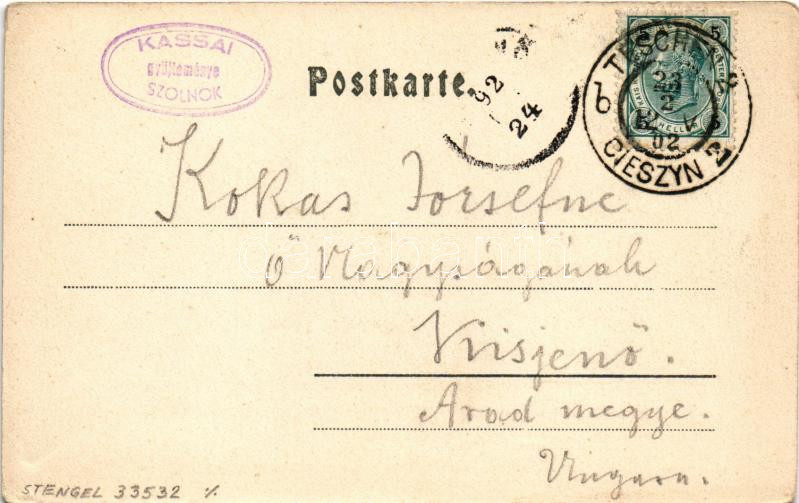 KASSAI
gyűjteménye
SZOLNOK
Postkarte.
92
24
TESCHEN 2
23
2
02
b
CIESZYN 2
5
HELLER
Kokas Józsefné
ő Nagyságának
Kisjenő.
Arad megye.
Ungarn.
STENGEL 33532 %